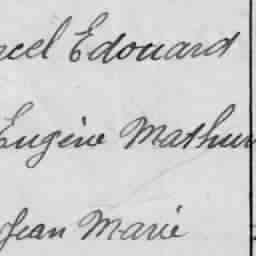 cel Edouard
Eugène Mathur
Jean Marie